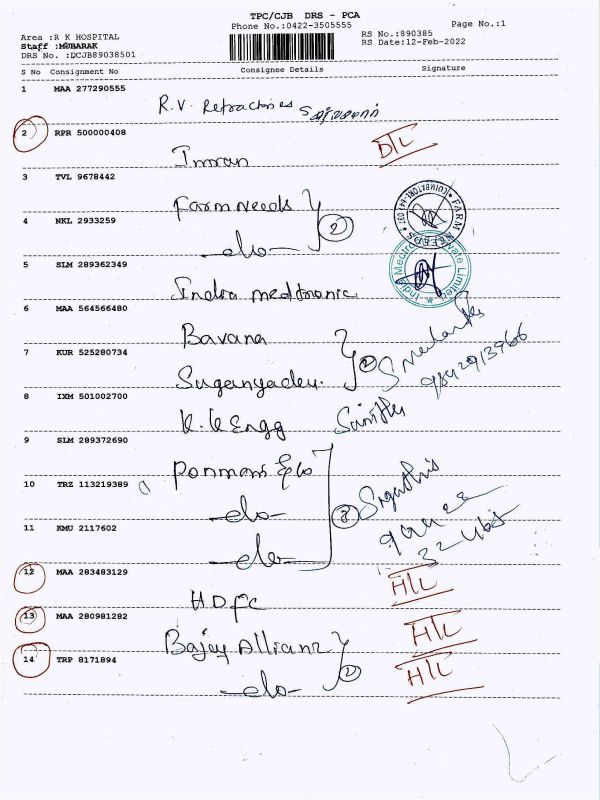 TPC/CJB DRS - PCA
Phone No.:0422-3505555
Page No.:1
Area :R K HOSPITAL
RS No.:890385
Staff :MUBARAK
RS Date:12-Feb-2022
DRS No. :DCJB89038501
S No Consignment No Consignee Details Signature
1 MAA 277290555
R.V. Refractories
2 RPR 500000408
Imran D/L
3 TVL 9678442
Farm Needs
4 NKL 2933259
-do- 2
FARM NEEDS
5 SLM 289362349
Indra medtronic
6 MAA 564566480
Bavana
7 KUR 525280734
Suganyadevi 2
8 IXM 501002700
K.K Engg
9 SLM 289372690
Ponmani & Co
10 TRZ 113219389
-do- 3
11 KMU 2117602
-do-
12 MAA 283483129
HDFC H/L
13 MAA 280981282
Bajaj Allianz H/L
14 TRP 8171894
-do- 2 H/L